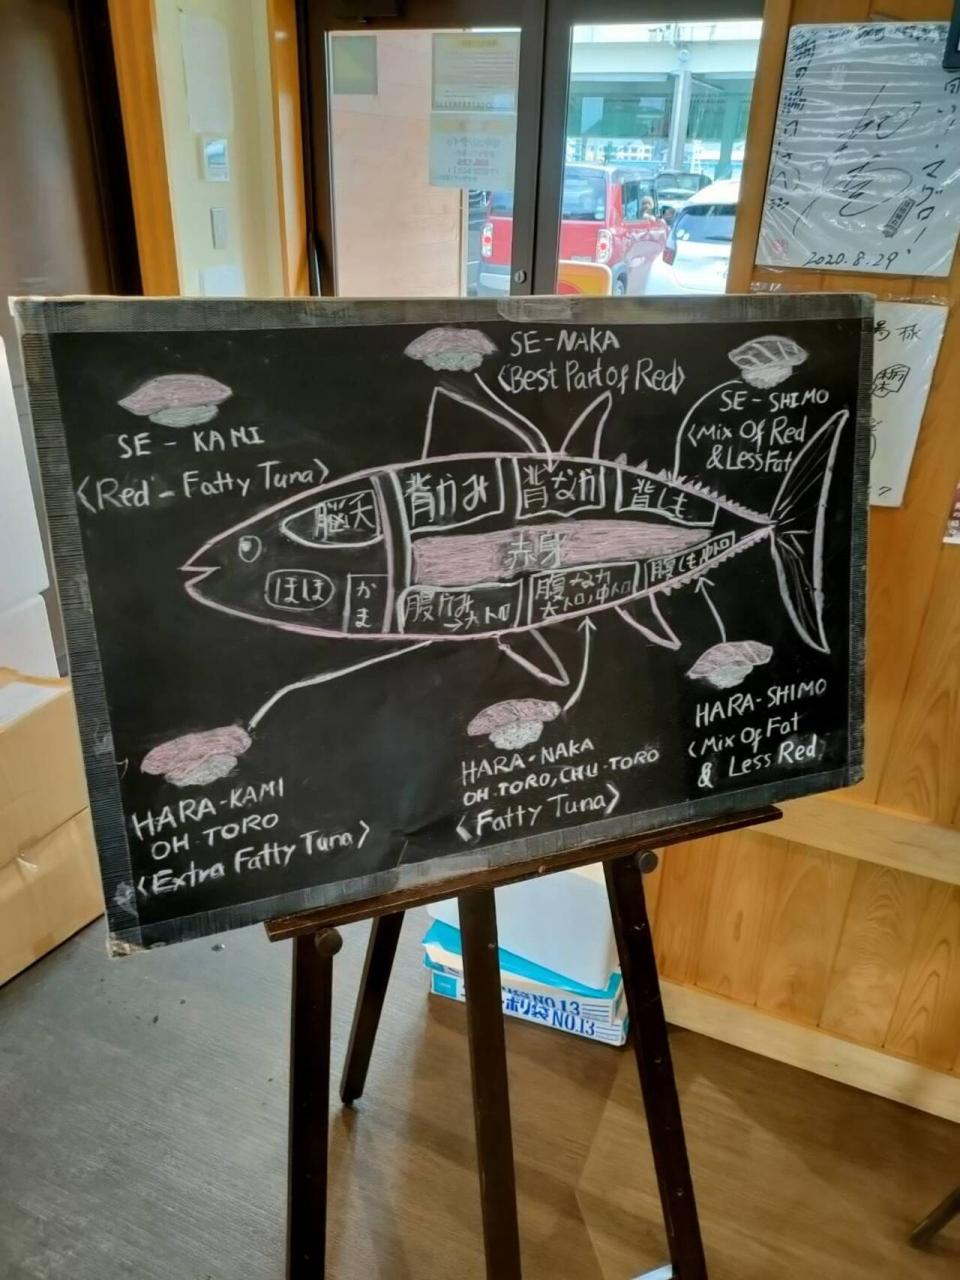 2020.8.29
SE-NAKA
<Best Part of Red>
SE-SHIMO
<Mix Of Red
& Less Fat
SE-KAMI
<Red-Fatty Tuna>
脳天
背かみ
背なか
背しも
赤身
ほほ
かま
腹かみ
→大トロ
腹なか
大トロ,中トロ
腹しも中トロ
HARA-KAMI
OH TORO
<Extra Fatty Tuna>
HARA-NAKA
OH TORO, CHU-TORO
<Fatty Tuna>
HARA-SHIMO
<Mix Of Fat
& Less Red>
NO.13
ポリ袋 NO.13